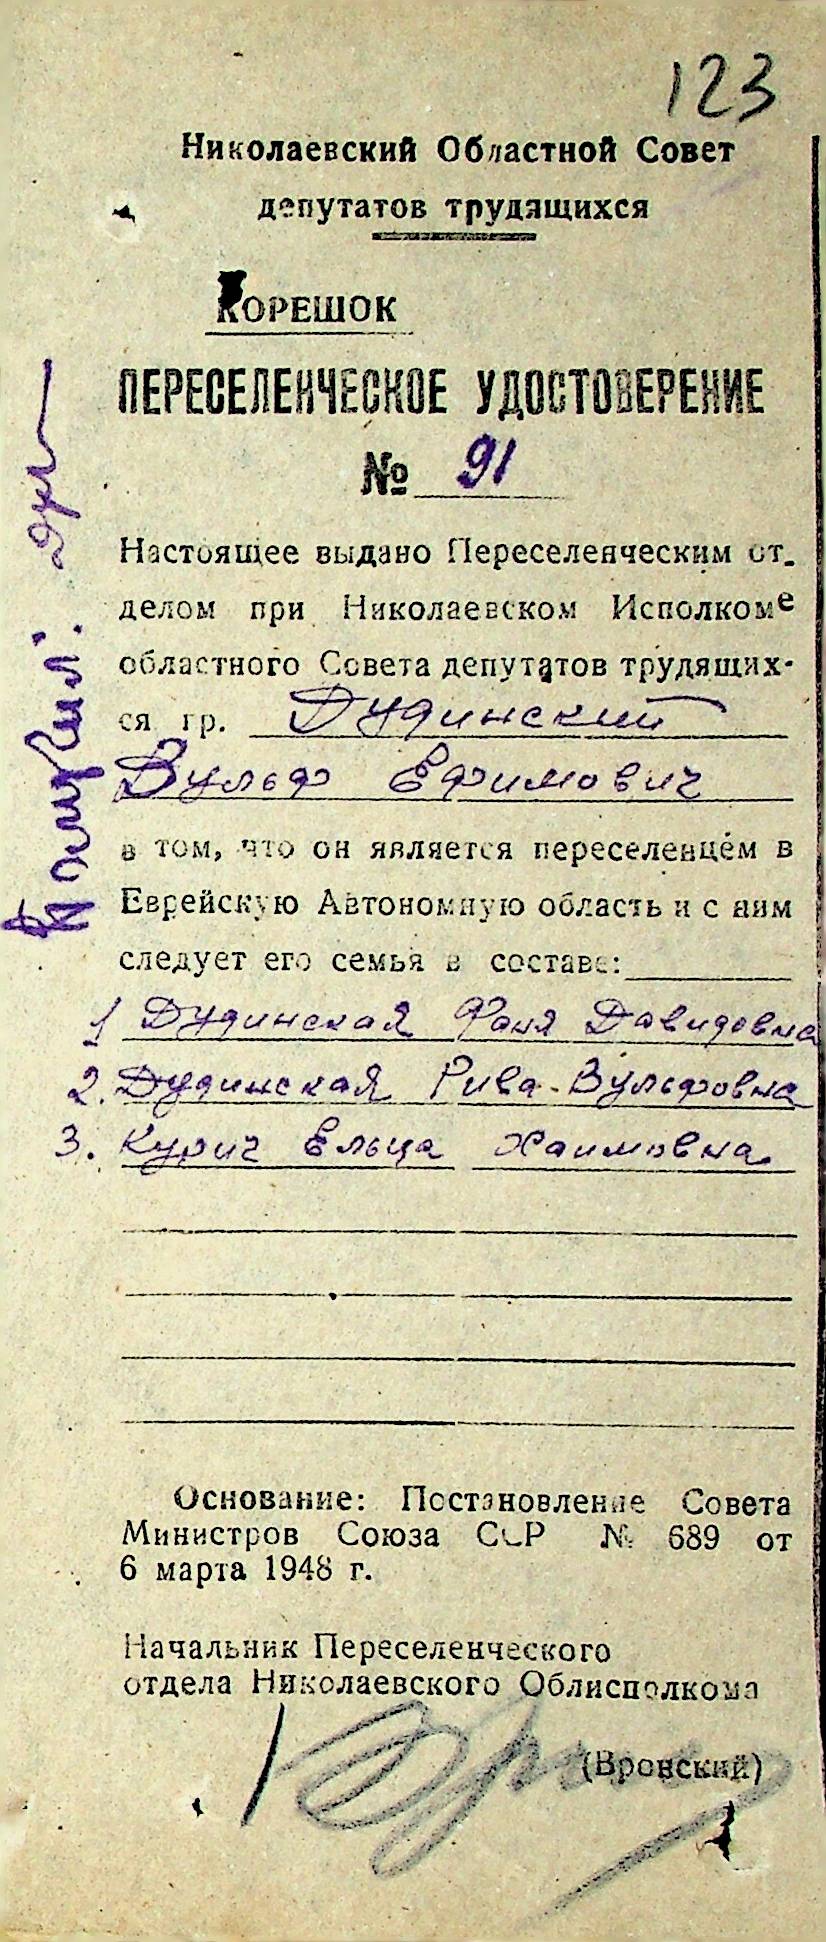 123
Николаевский Областной Совет
депутатов трудящихся
КОРЕШОК
ПЕРЕСЕЛЕНЧЕСКОЕ УДОСТОВЕРЕНИЕ
№ 91
Настоящее выдано Переселенческим от-
делом при Николаевском Исполкоме
областного Совета депутатов трудящих-
ся гр. Дудинский
Вульф Ефимович
в том, что он является переселенцем в
Еврейскую Автономную область и с ним
следует его семья в составе:
1 Дудинская Фаня Давидовна
2. Дудинская Рива Вульфовна
3. Курич Ельца Хаимовна
Основание: Постановление Совета
Министров Союза ССР № 689 от
6 марта 1948 г.
Начальник Переселенческого
отдела Николаевского Облисполкома
(Вронский)
Получил: